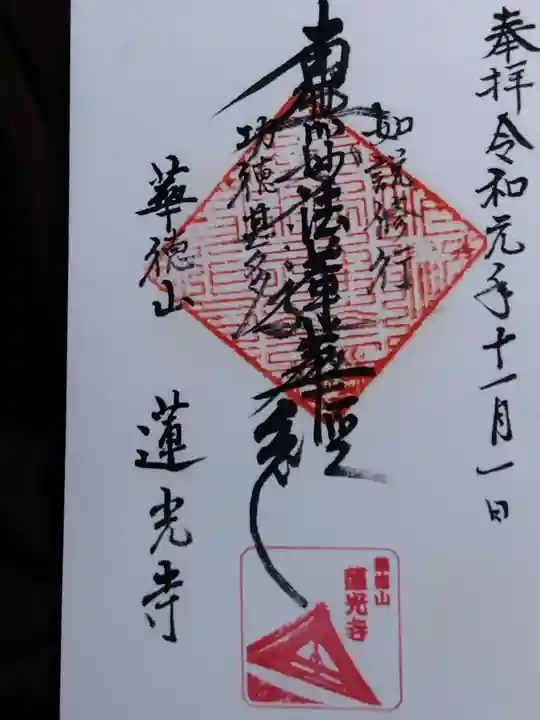 奉拝令和元年十一月一日
如説修行
南無妙法蓮華経
功徳甚多
華徳山　蓮光寺
華徳山
蓮光寺